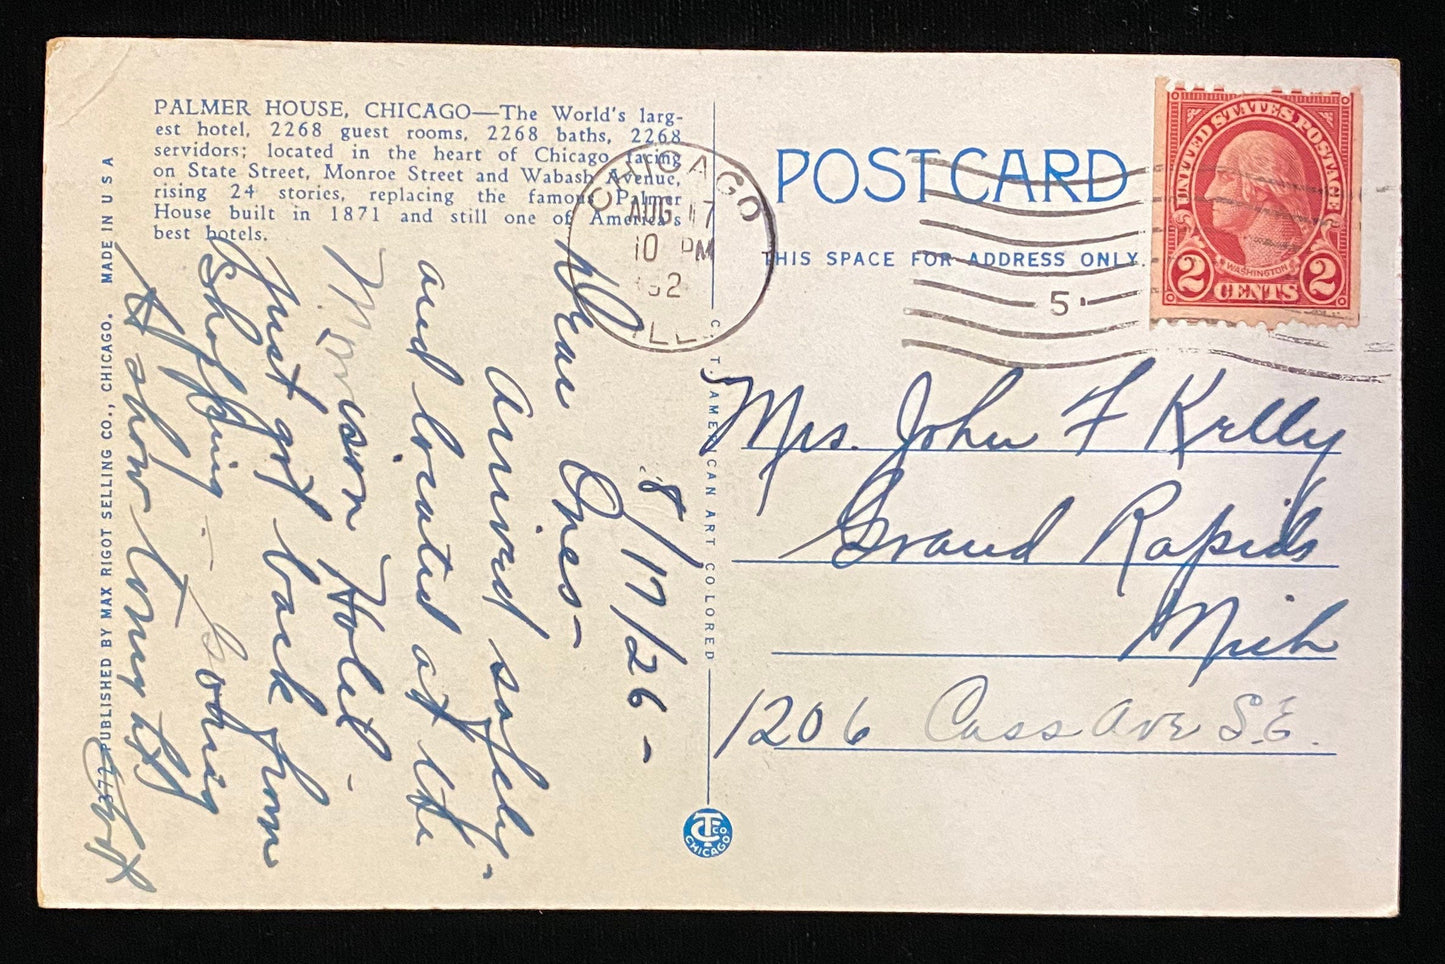 PALMER HOUSE, CHICAGO—The World's larg-
est hotel, 2268 guest rooms, 2268 baths, 2268
servidors; located in the heart of Chicago facing
on State Street, Monroe Street and Wabash Avenue,
rising 24 stories, replacing the famous Palmer
House built in 1871 and still one of America's
best hotels.
372 PUBLISHED BY MAX RIGOT SELLING CO., CHICAGO. MADE IN U S A
8/17/26 -
Dear Ones -
Arrived safely -
and located at the
Morrison Hotel -
Just got back from
shopping - going
to show tonight
C. T. AMERICAN ART COLORED
CTCO
CHICAGO
POST CARD
THIS SPACE FOR ADDRESS ONLY.
CHICAGO
AUG 17
10 PM
ILL.
5
UNITED STATES POSTAGE
WASHINGTON
2 CENTS 2
Mrs. John F Kelly
Grand Rapids
Mich
1206 Cass Ave S.E.